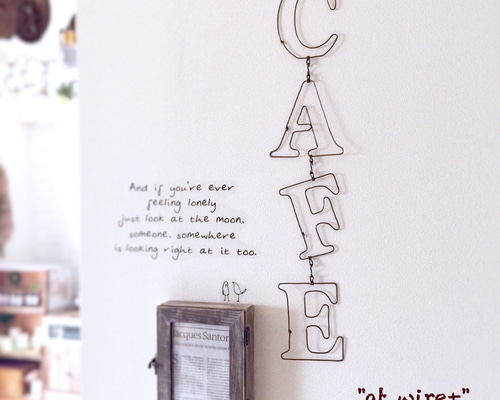 CAFE
And if you're ever
feeling lonely
just look at the moon.
someone, somewhere
is looking right at it too.
Jacques Santor
"at wire+"